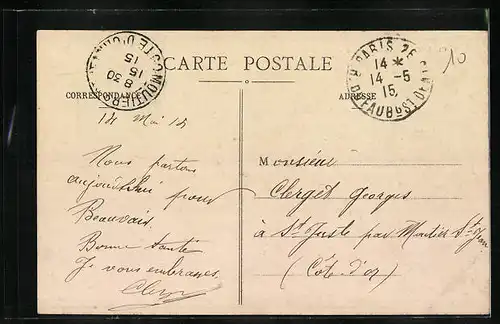 CARTE POSTALE
PARIS 25
R. DU FAUBG ST DENIS
14 *
14 -5
15
CÔTE D'OR
8 30
15
15
10
CORRESPONDANCE
ADRESSE
14 Mai 15
Nous partons
aujourd'hui pour
Beauvais.
Bonne santé
Je vous embrasse
Monsieur
Clerget Georges
à St Juste par Moutier St Jean
(Côte-d'or)